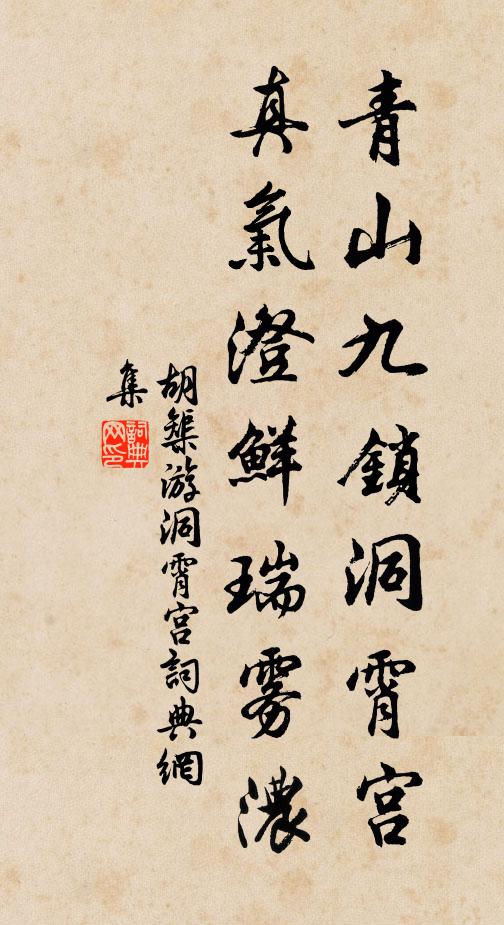 青山九鎖洞霄宮
真氣澄鮮瑞雾濃
胡榘游洞霄宮詞典網
集
詞典
网印